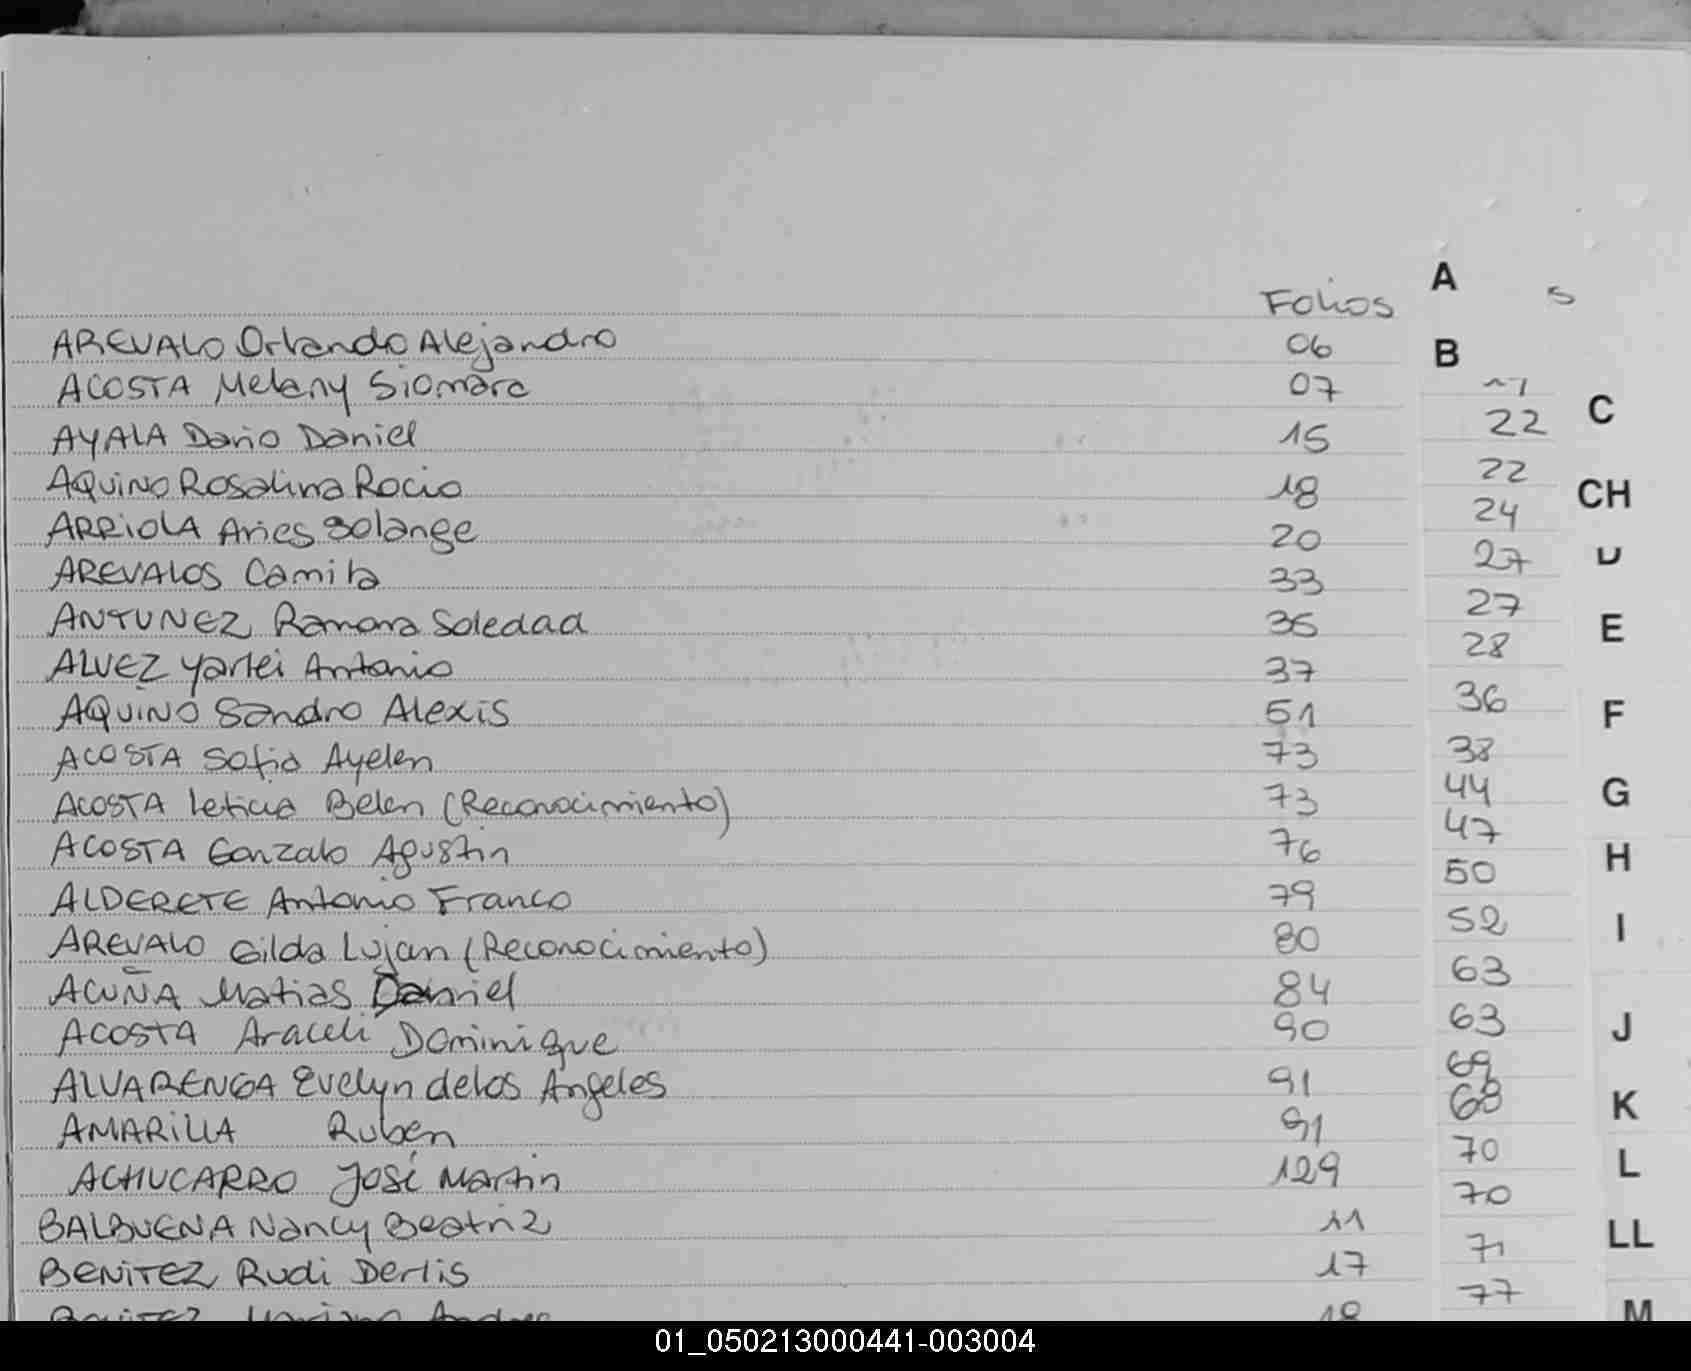 Folios
AREVALO Orlando Alejandro 06
ACOSTA Melany Siomara 07
AYALA Dario Daniel 15
AQUINO Rosalina Rocio 18
ARRIOLA Aries Solange 20
AREVALOS Camila 33
ANTUNEZ Ramona Soledad 35
ALVEZ Yarlei Antonio 37
AQUINO Sandro Alexis 51
ACOSTA Sofia Ayelen 73
ACOSTA Leticia Belen (Reconocimiento) 73
ACOSTA Gonzalo Agustin 76
ALDERETE Antonio Franco 79
AREVALO Gilda Lujan (Reconocimiento) 80
ACUÑA Matias Daniel 84
ACOSTA Araceli Dominique 90
ALVARENGA Evelyn delos Angeles 91
AMARILLA Rubén 91
ACHUCARRO José Martin 129
BALBUENA Nancy Beatriz 11
BENITEZ Rudi Derlis 17
BENITEZ Mariano Andres 18
s
22
22
24
27
27
28
36
38
44
47
50
52
63
63
69
68
70
70
71
77
A
B
C
CH
D
E
F
G
H
I
J
K
L
LL
M
01_050213000441-003004